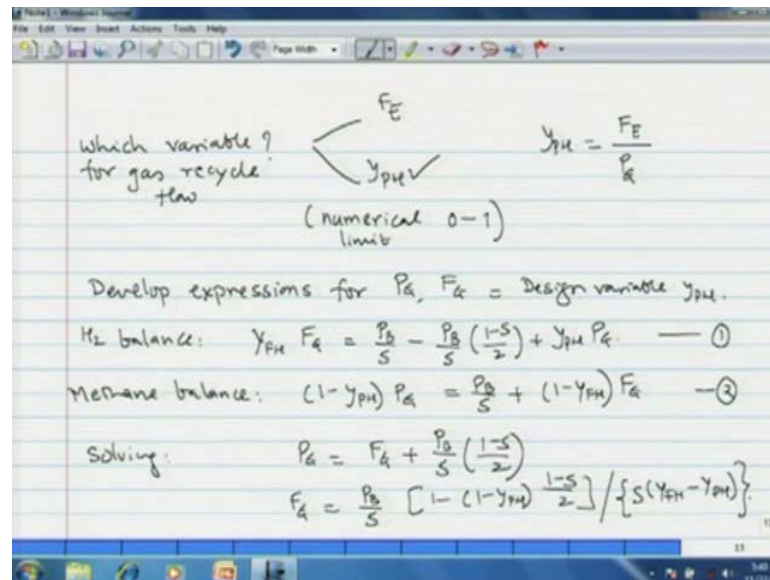 Note1 - Windows Journal
File Edit View Insert Actions Tools Help
Page Width
F_E
which variable?
for gas recycle
flow
y_PH ✓
y_PH = F_E / P_G
(numerical 0-1)
limit
Develop expressions for P_G, F_G = Design variable y_PH.
H₂ balance: Y_FH F_G = P_B/S - P_B/S (1-S/2) + y_PH P_G. — ①
Methane balance: (1-y_PH) P_G = P_B/S + (1-Y_FH) F_G — ②
Solving: P_G = F_G + P_B/S (1-S/2)
F_G = P_B/S [1-(1-y_PH) 1-S/2] / {S(Y_FH-y_PH)}.
13
5:40